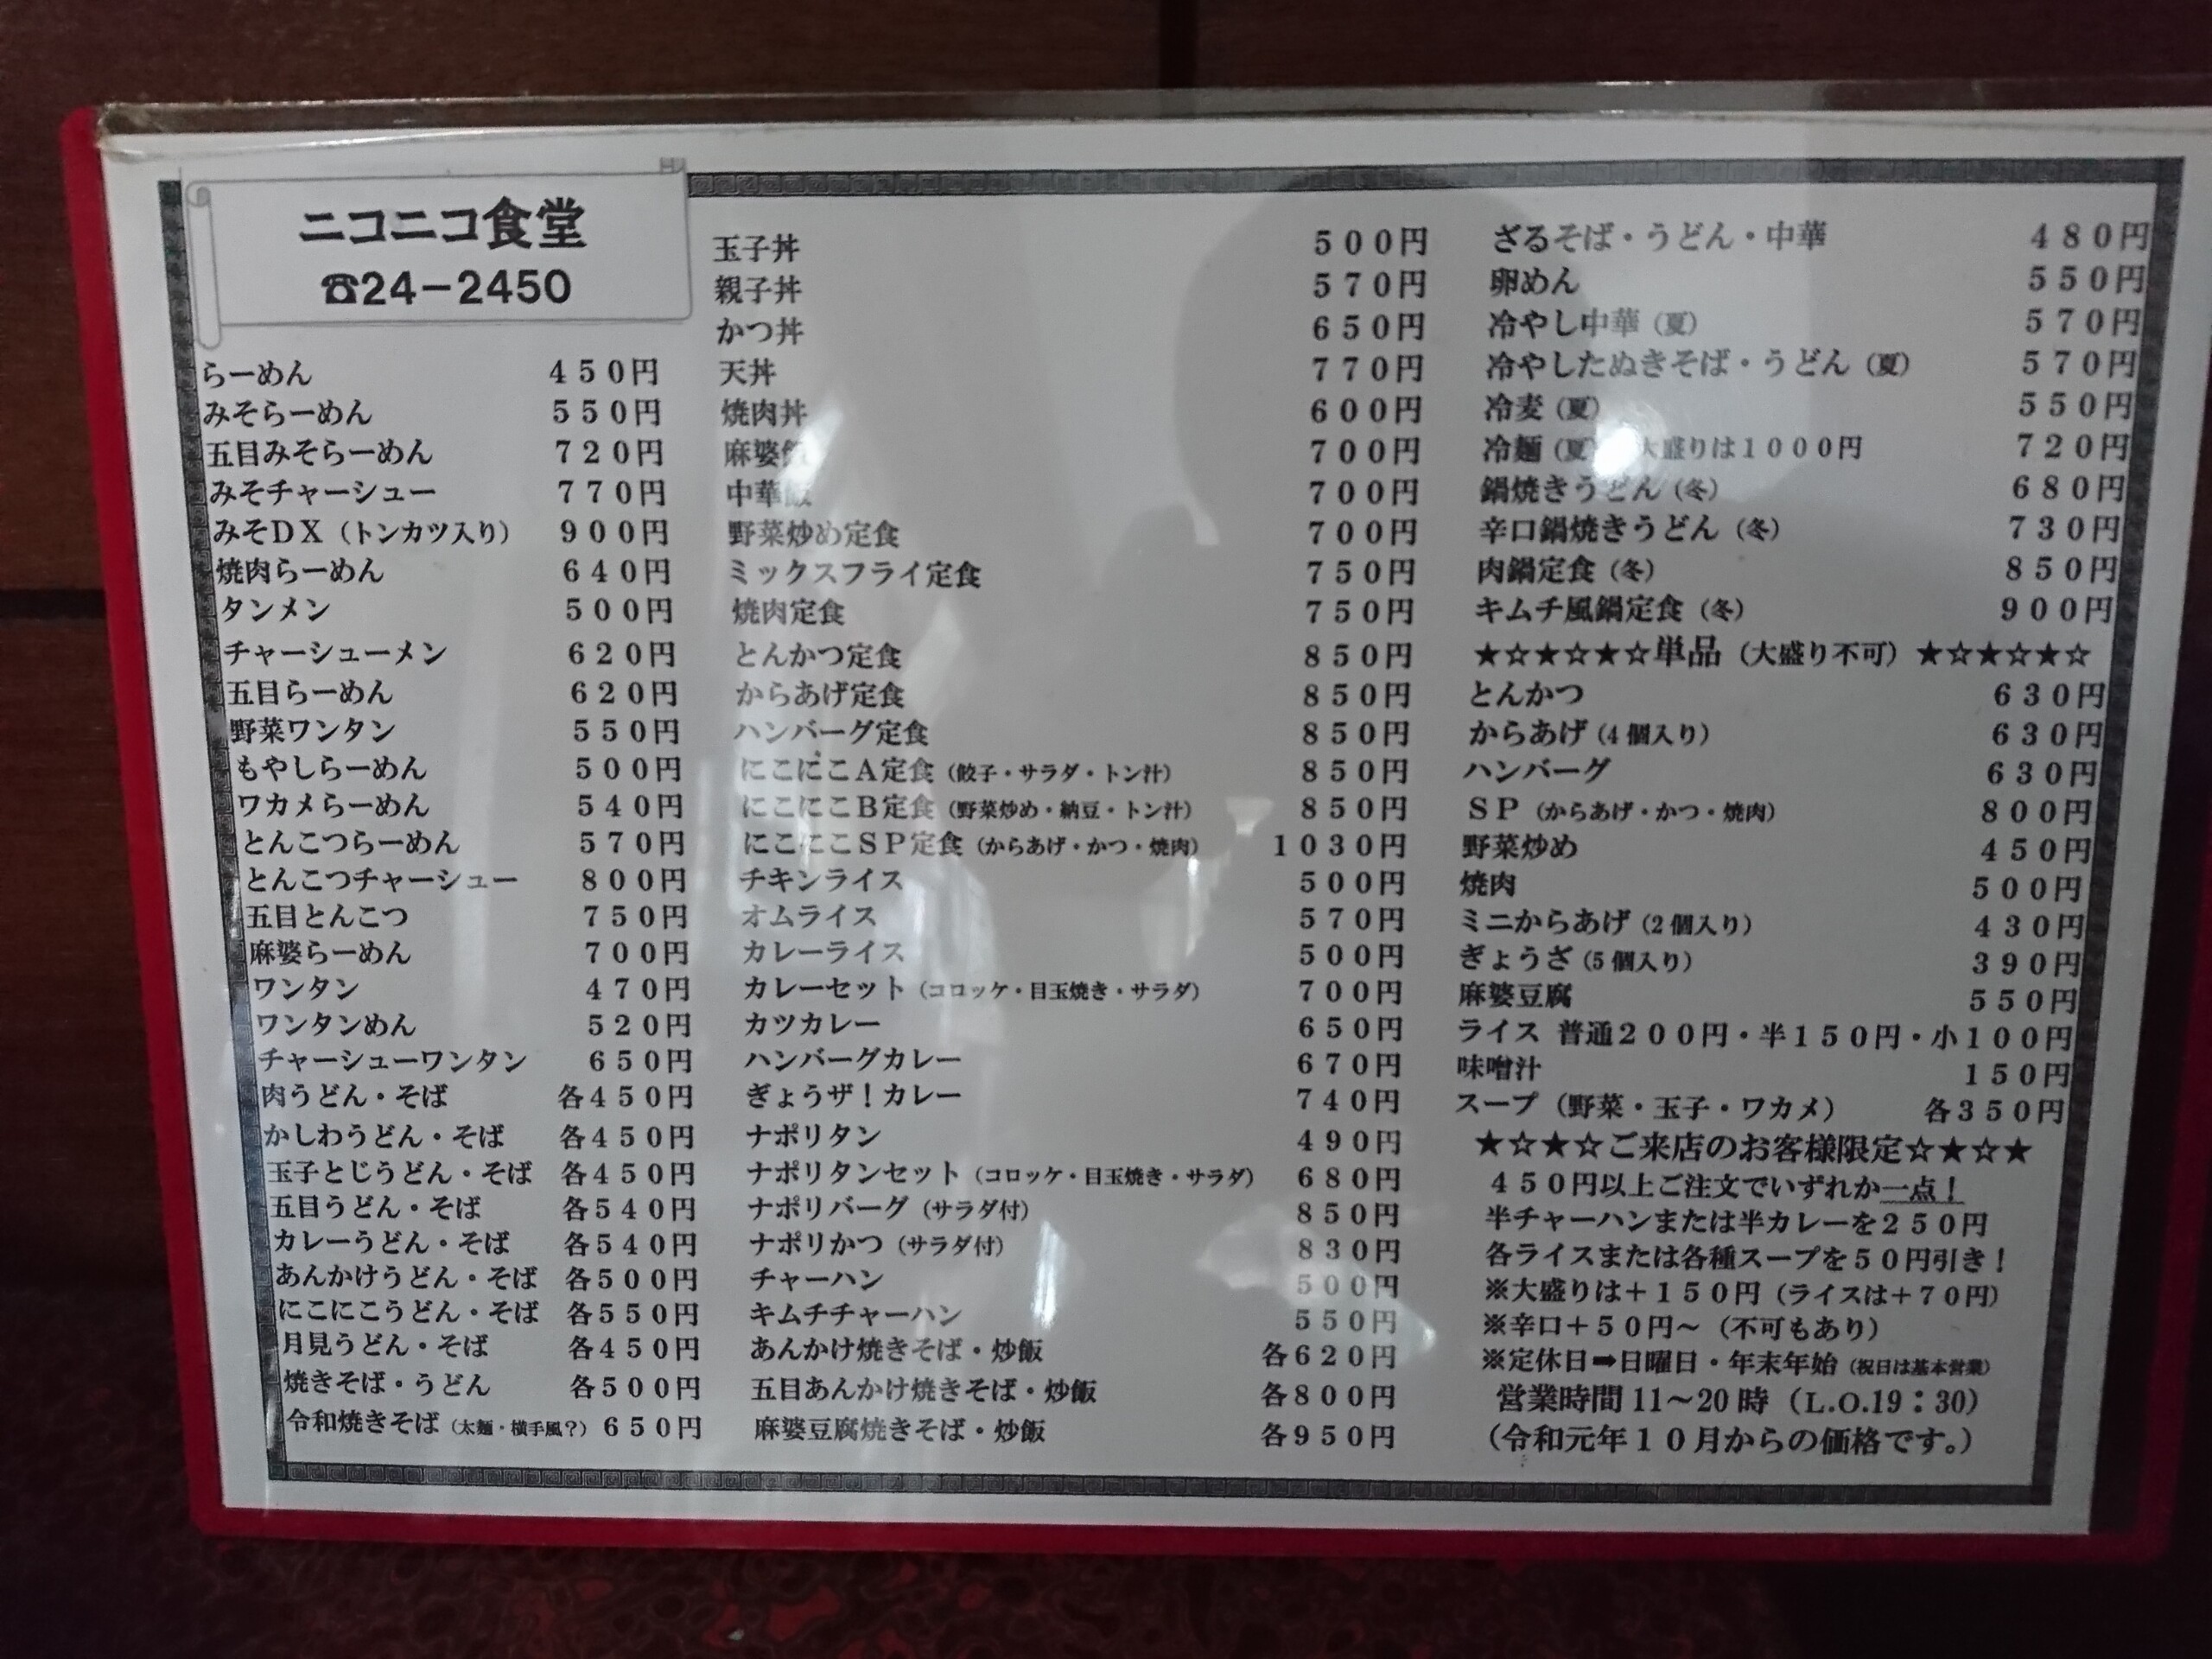 ニコニコ食堂
☎24－2450
らーめん 450円
みそらーめん 550円
五目みそらーめん 720円
みそチャーシュー 770円
みそDX（トンカツ入り） 900円
焼肉らーめん 640円
タンメン 500円
チャーシューメン 620円
五目らーめん 620円
野菜ワンタン 550円
もやしらーめん 500円
ワカメらーめん 540円
とんこつらーめん 570円
とんこつチャーシュー 800円
五目とんこつ 750円
麻婆らーめん 700円
ワンタン 470円
ワンタンめん 520円
チャーシューワンタン 650円
肉うどん・そば 各450円
かしわうどん・そば 各450円
玉子とじうどん・そば 各450円
五目うどん・そば 各540円
カレーうどん・そば 各540円
あんかけうどん・そば 各500円
にこにこうどん・そば 各550円
月見うどん・そば 各450円
焼きそば・うどん 各500円
令和焼きそば（太麺・横手風？） 650円
玉子丼 500円
親子丼 570円
かつ丼 650円
天丼 770円
焼肉丼 600円
麻婆飯 700円
中華飯 700円
野菜炒め定食 700円
ミックスフライ定食 750円
焼肉定食 750円
とんかつ定食 850円
からあげ定食 850円
ハンバーグ定食 850円
にこにこA定食（餃子・サラダ・トン汁） 850円
にこにこB定食（野菜炒め・納豆・トン汁） 850円
にこにこSP定食（からあげ・かつ・焼肉） 1030円
チキンライス 500円
オムライス 570円
カレーライス 500円
カレーセット（コロッケ・目玉焼き・サラダ） 700円
カツカレー 650円
ハンバーグカレー 670円
ぎょうザ！カレー 740円
ナポリタン 490円
ナポリタンセット（コロッケ・目玉焼き・サラダ） 680円
ナポリバーグ（サラダ付） 850円
ナポリかつ（サラダ付） 830円
チャーハン 500円
キムチチャーハン 550円
あんかけ焼きそば・炒飯 各620円
五目あんかけ焼きそば・炒飯 各800円
麻婆豆腐焼きそば・炒飯 各950円
ざるそば・うどん・中華 480円
卵めん 550円
冷やし中華（夏） 570円
冷やしたぬきそば・うどん（夏） 570円
冷麦（夏） 550円
冷麺（夏 大盛りは1000円 720円
鍋焼きうどん（冬） 680円
辛口鍋焼きうどん（冬） 730円
肉鍋定食（冬） 850円
キムチ風鍋定食（冬） 900円
★☆★☆★☆単品（大盛り不可）★☆★☆★☆
とんかつ 630円
からあげ（4個入り） 630円
ハンバーグ 630円
SP（からあげ・かつ・焼肉） 800円
野菜炒め 450円
焼肉 500円
ミニからあげ（2個入り） 430円
ぎょうざ（5個入り） 390円
麻婆豆腐 550円
ライス 普通200円・半150円・小100円
味噌汁 150円
スープ（野菜・玉子・ワカメ） 各350円
★☆★☆ご来店のお客様限定☆★☆★
450円以上ご注文でいずれか一点！
半チャーハンまたは半カレーを250円
各ライスまたは各種スープを50円引き！
※大盛りは＋150円（ライスは＋70円）
※辛口＋50円～（不可もあり）
※定休日➡日曜日・年末年始（祝日は基本営業）
営業時間11～20時（L.O.19：30）
（令和元年10月からの価格です。）